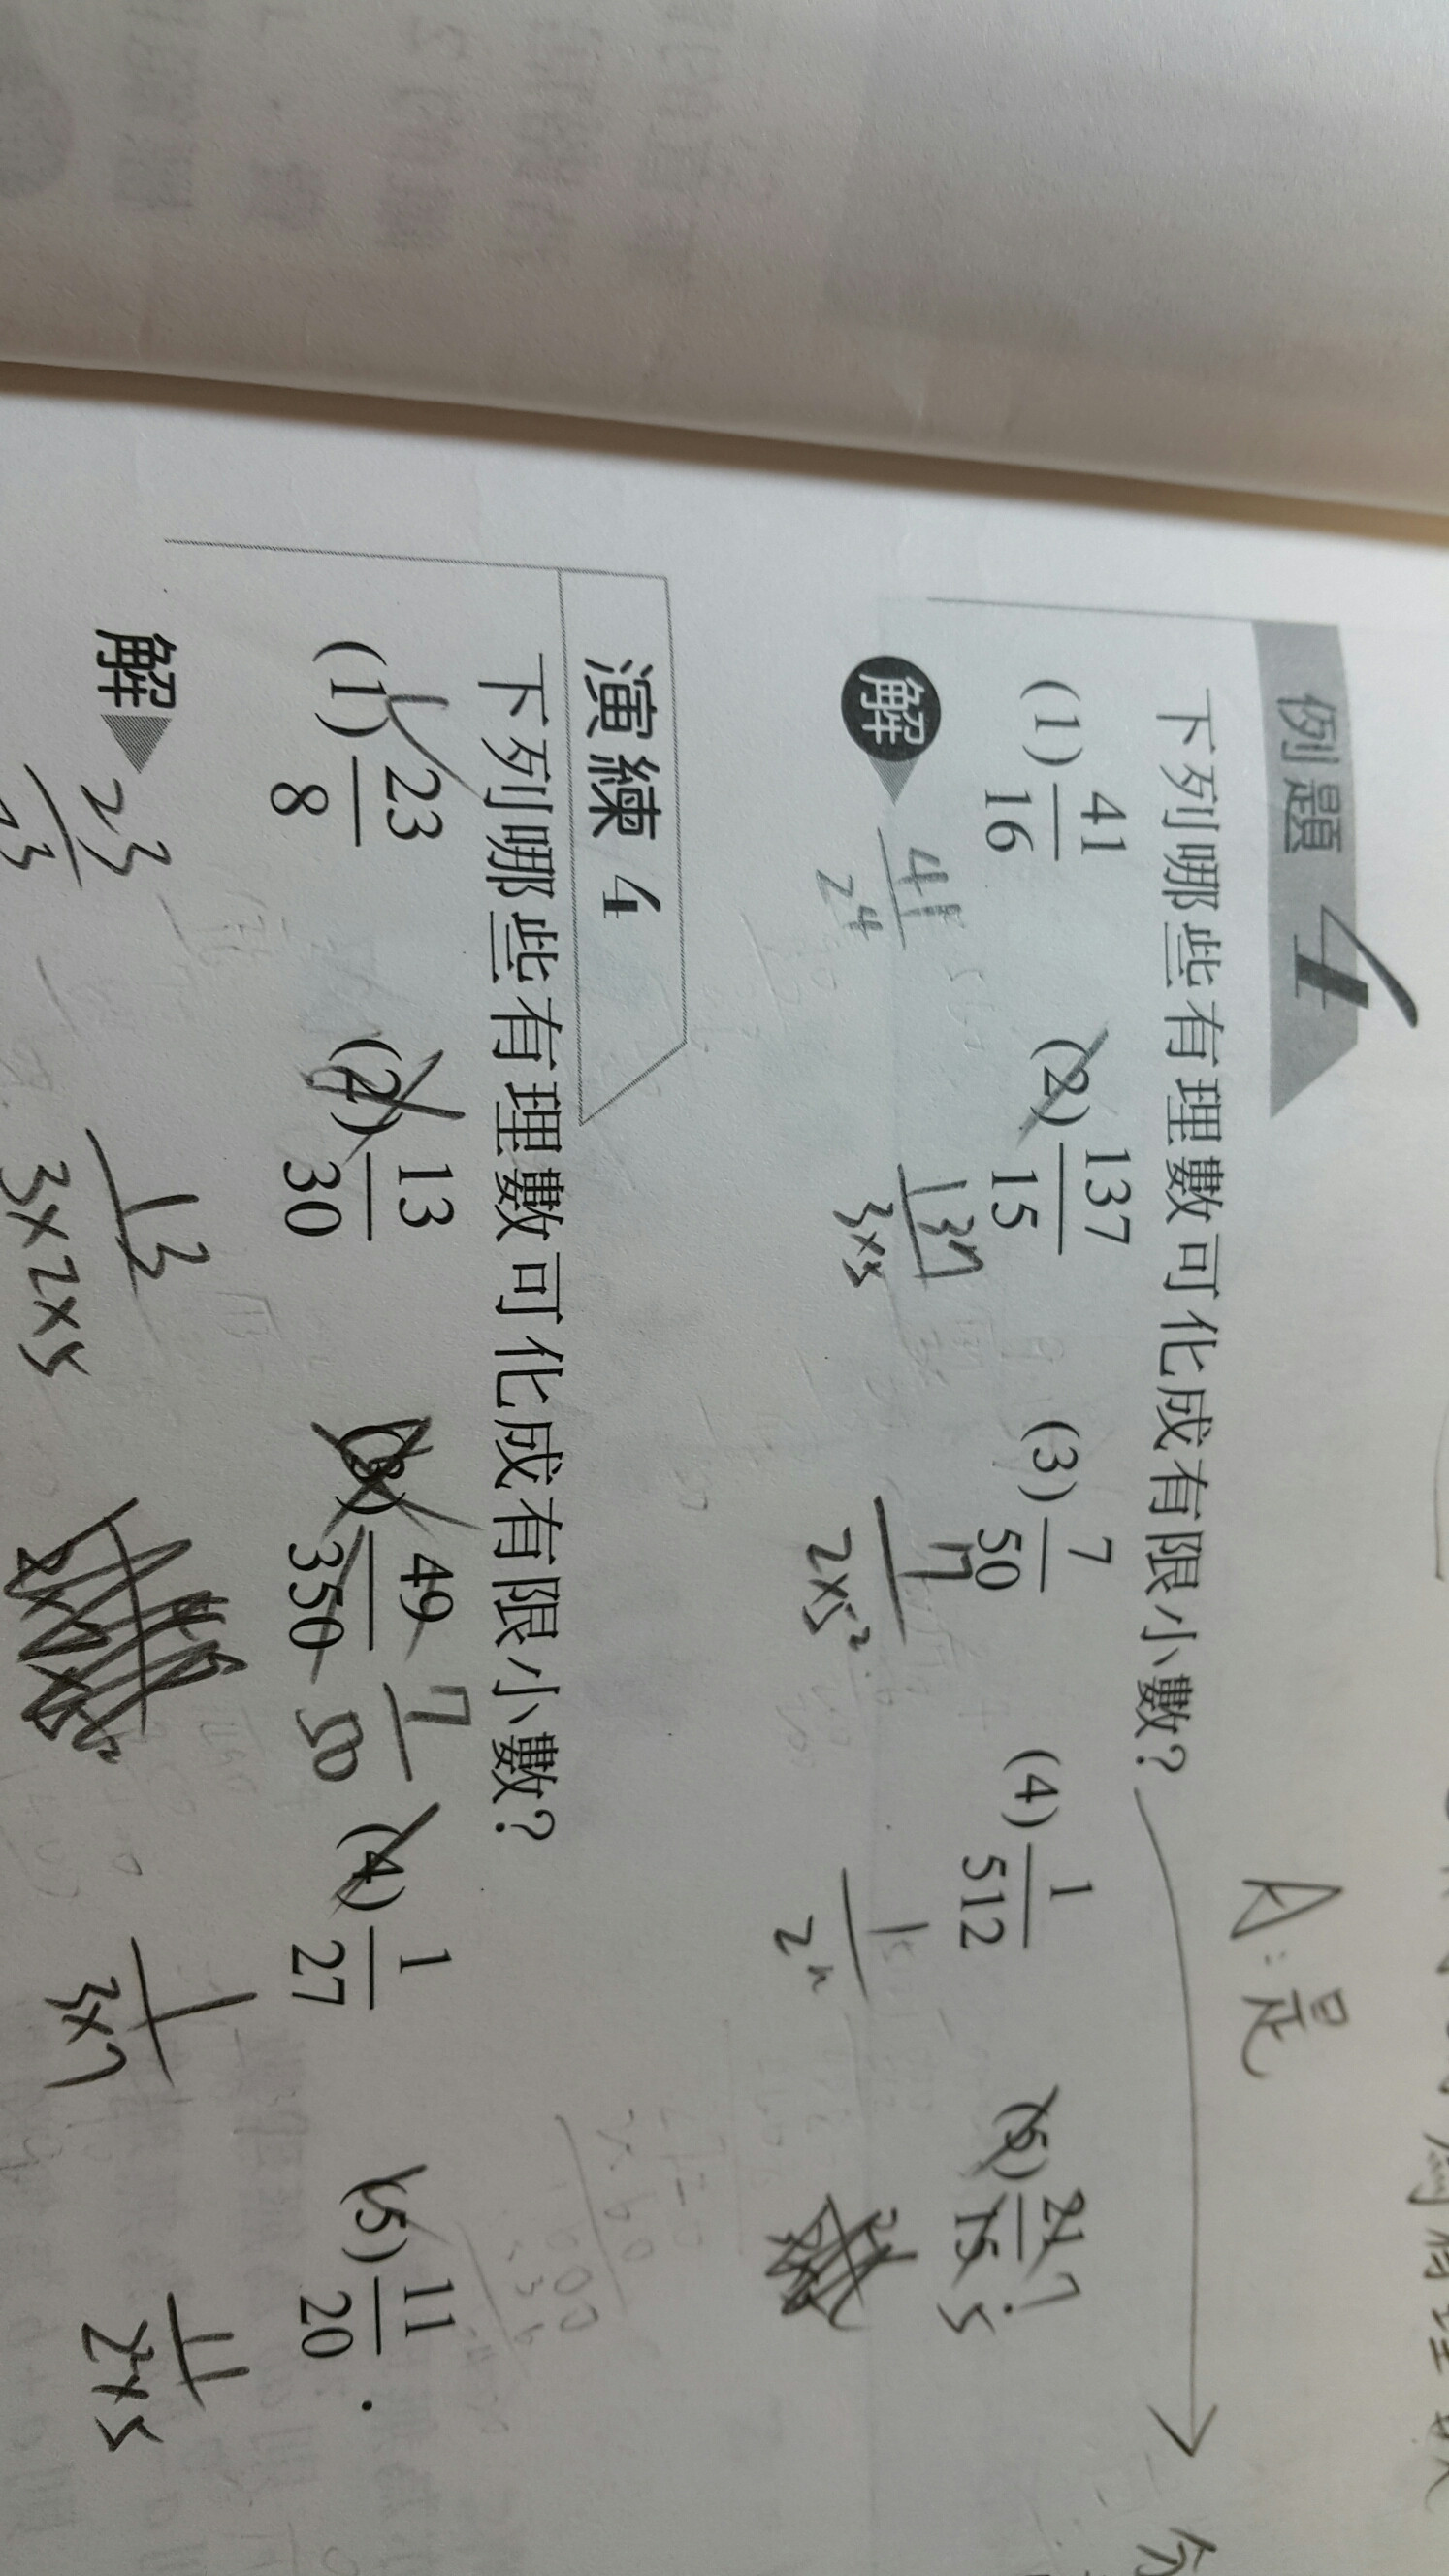 例題 4
A:是
下列哪些有理數可化成有限小數？
(1) 41/16 (2) 137/15 (3) 7/50 (4) 1/512 (5) 21/15 7/5
解 41/2⁴ 137/3×5 7/2×5² 1/2ⁿ
演練 4
下列哪些有理數可化成有限小數？
(1) 23/8 (2) 13/30 (3) 49/350 7/50 (4) 1/27 (5) 11/20 .
解 23 13/3×2×5 1/3×7 11/2×5